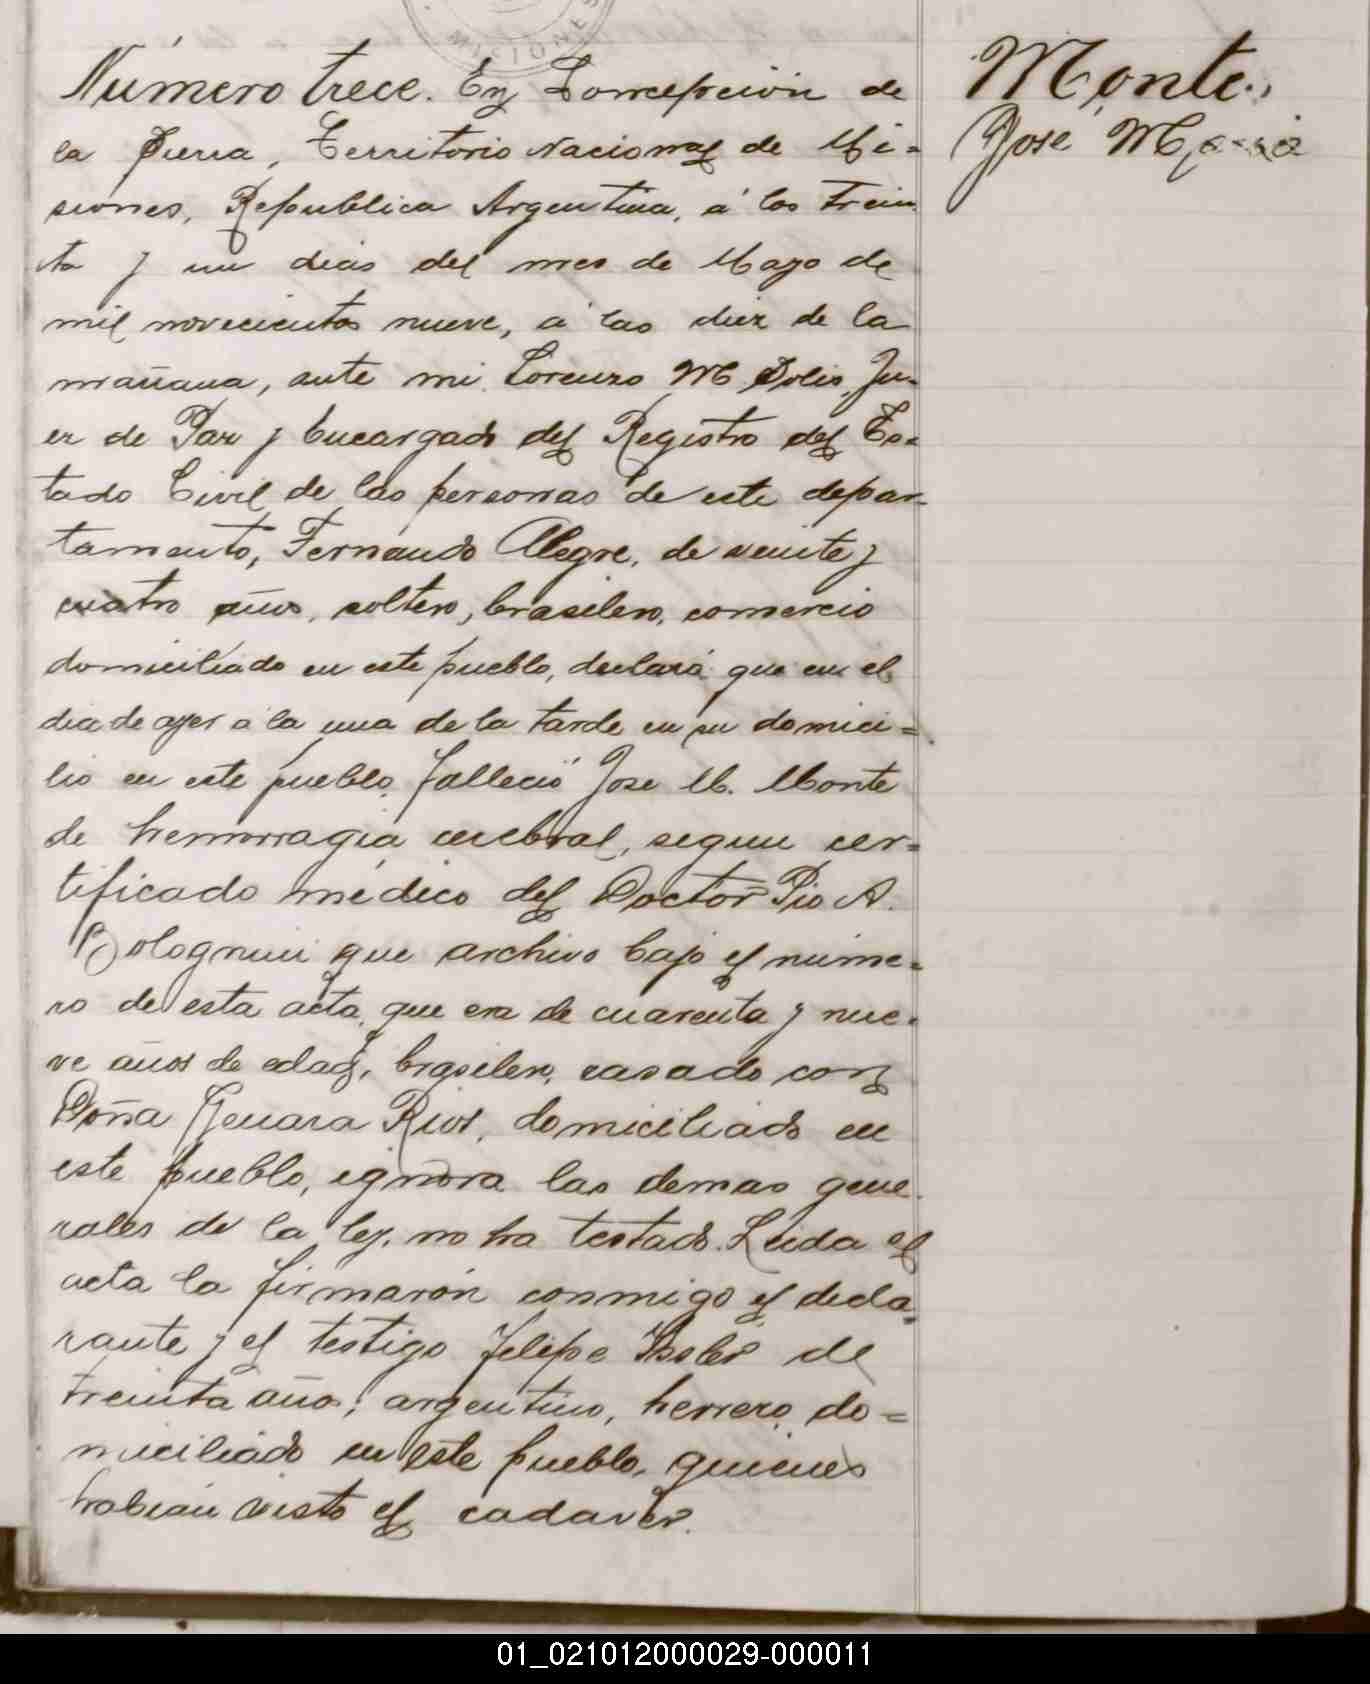 MISIONES
Número trece. En Concepción de
la Sierra, Territorio Nacional de Mi=
siones, Republica Argentina, á los trein
ta y un dias del mes de Mayo de
mil novecientos nueve, á las diez de la
mañana, ante mi, Lorenzo M. Solis, Ju-
ez de Paz y Encargado del Registro del Es=
tado Civil de las personas de este depar-
tamento, Fernando Alegre, de veinte y
cuatro años, soltero, brasilero, comercio
domiciliado en este pueblo, declará que en el
dia de ayer á la una de la tarde en su domici=
lio en este pueblo, falleció Jose M. Monte
de hemorragia cerebral, segun cer=
tificado médico del Doctor Pio A.
Bolognini que archivo bajo el núme=
ro de esta acta, que era de cuarenta y nue=
ve años de edad, brasilero, casado con
Doña Genara Rios, domiciliado en
este pueblo, ignora las demas gene
rales de la ley, no ha testado. Leida el
acta la firmarón conmigo el decla
rante y el testigo Felipe de
treinta años, argentino, herrero, do=
miciliado en este pueblo, quienes
habian visto el cadaver.
Monte,
José Maria
01_021012000029-000011